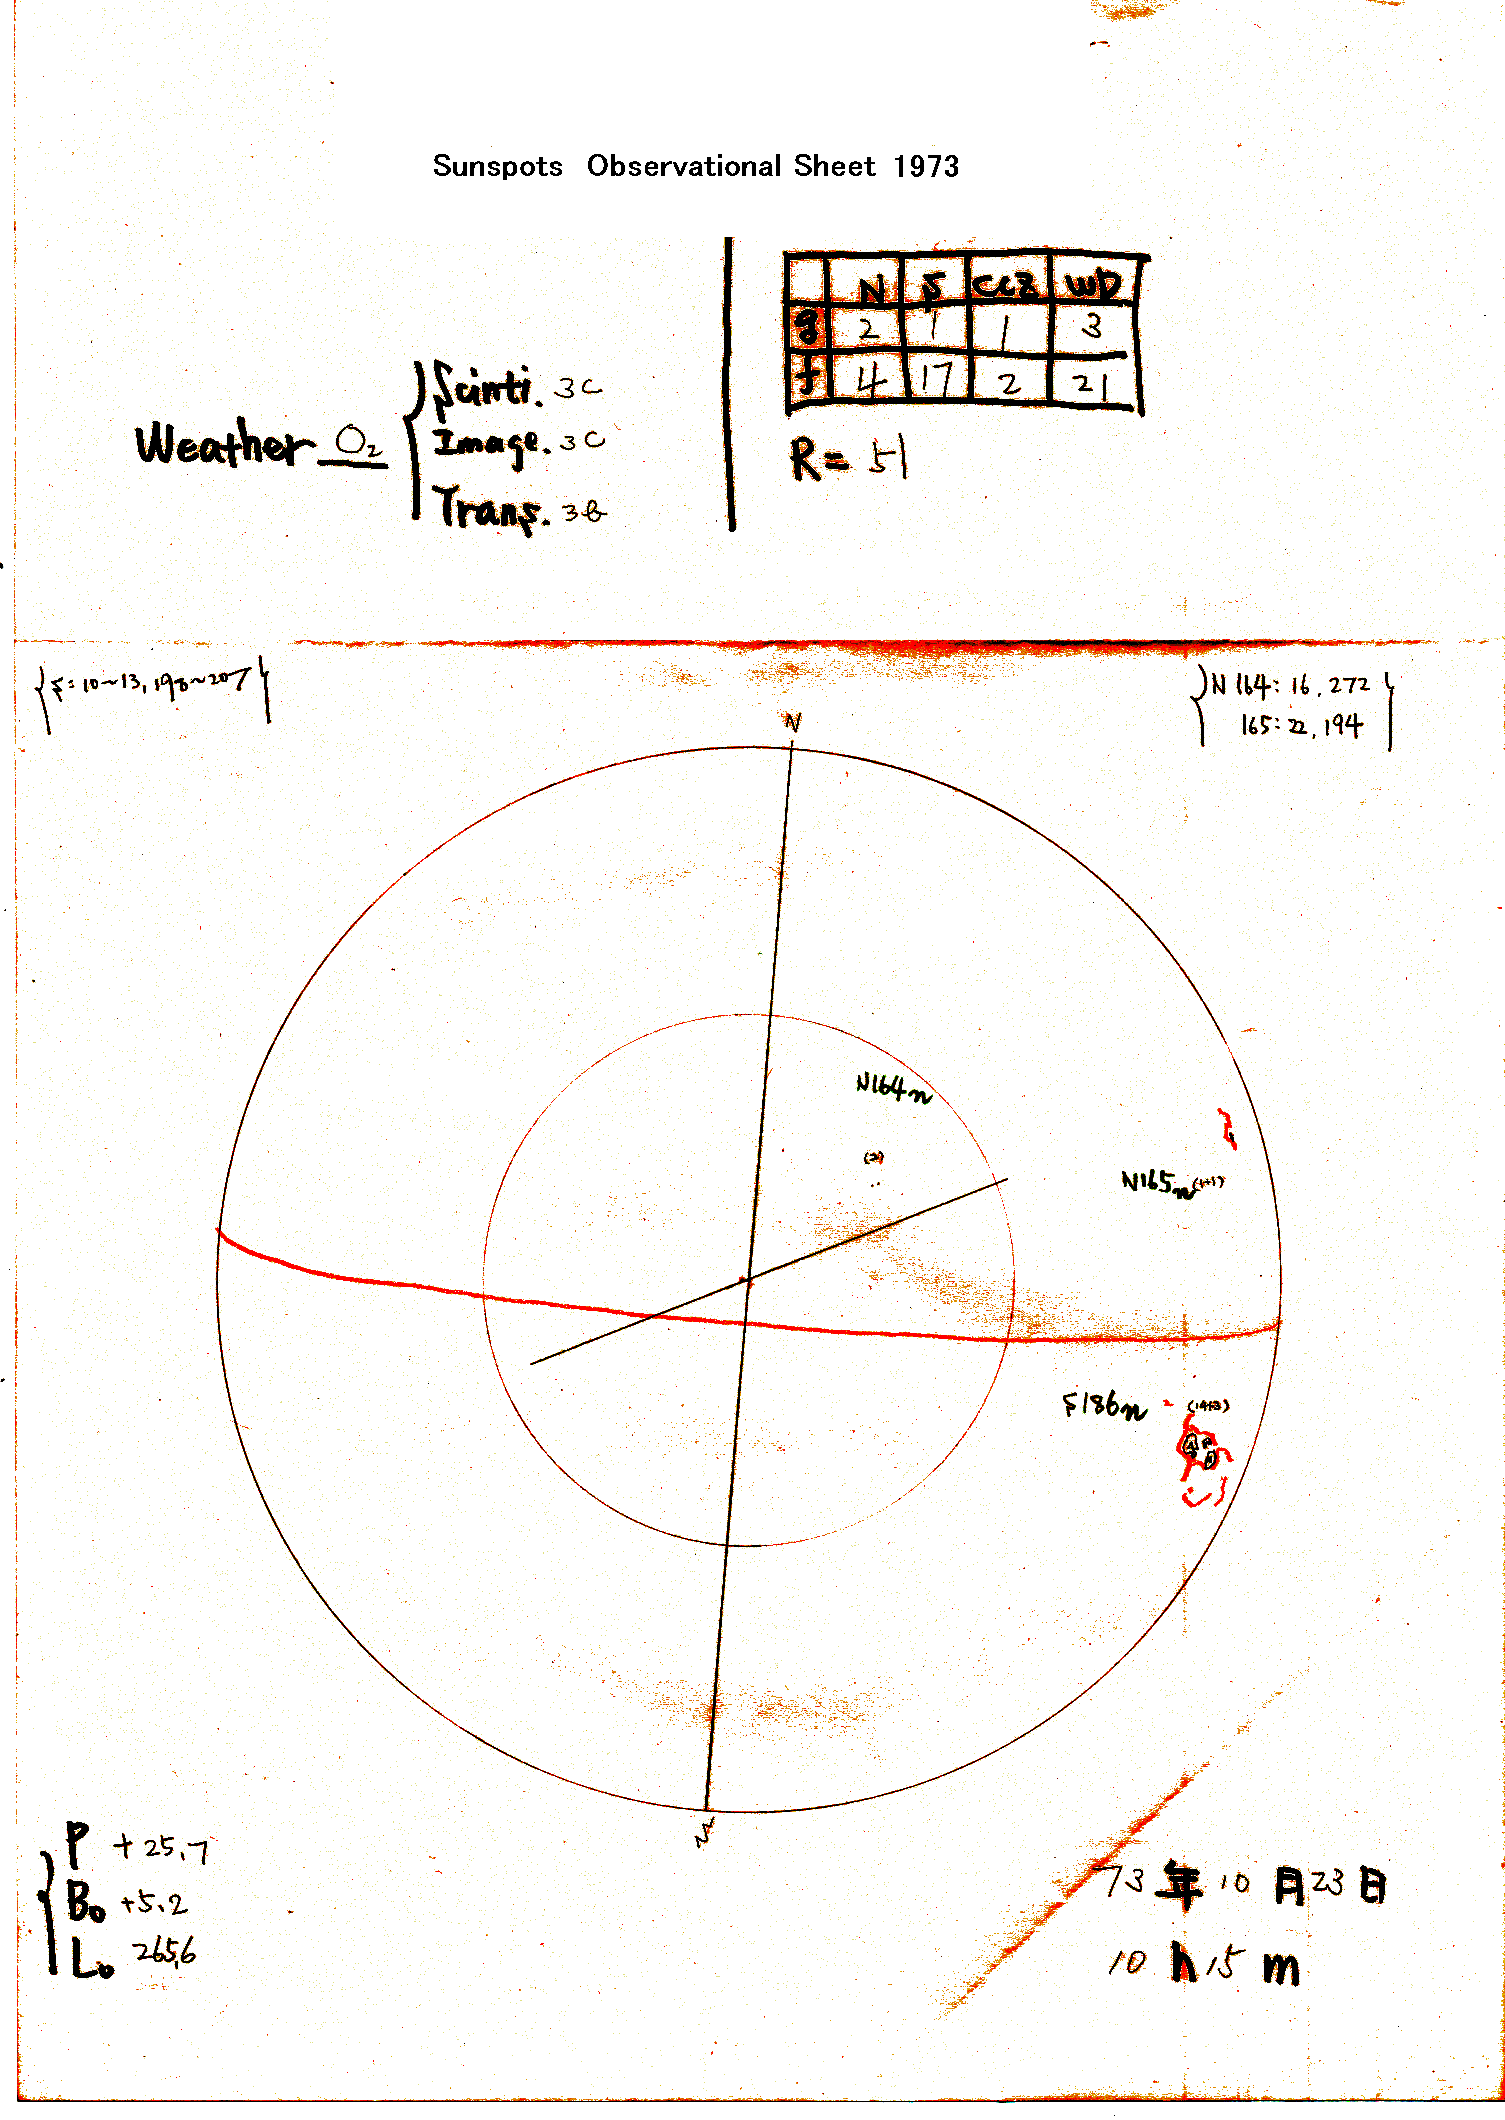 Sunspots Observational Sheet 1973
N S CCZ WD
g 2 1 1 3
f 4 17 2 21
R= 51
Weather O2
Scinti. 3C
Image. 3C
Trans. 3b
S: 10~13, 198~207
N 164: 16, 272
165: 22, 194
N
N164n
(2)
N165n (1+1)
S186n (14+3)
S
P +25.7
B0 +5.2
L0 265.6
73年10月23日
10h15m